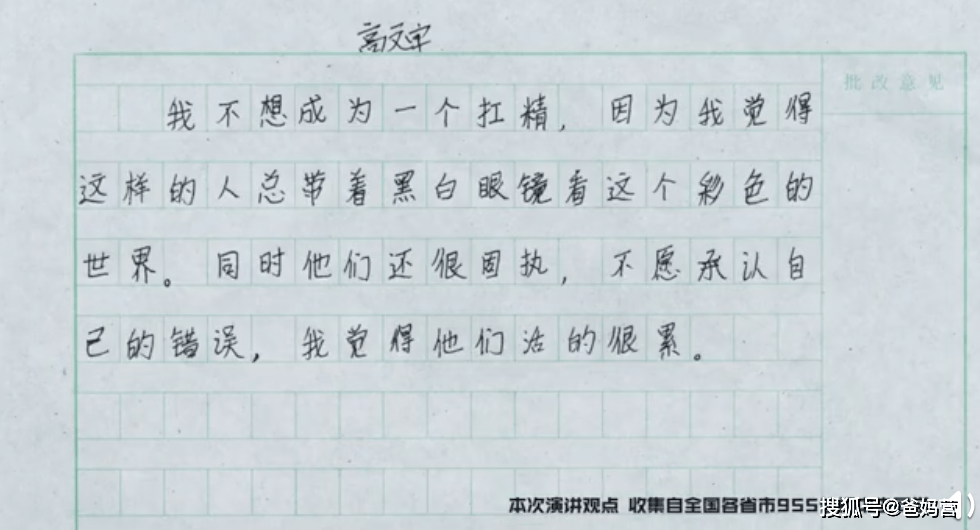 高文宇
批改意见
我不想成为一个扛精，因为我觉得
这样的人总带着黑白眼镜看这个彩色的
世界。同时他们还很固执，不愿承认自
己的错误，我觉得他们活的很累。
本次演讲观点 收集自全国各省市955
搜狐号@爸妈营